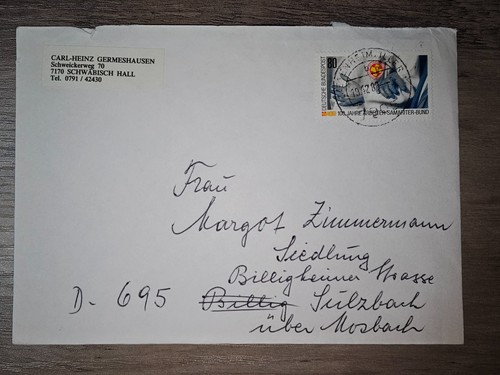 CARL-HEINZ GERMESHAUSEN
Schweickerweg 70
7170 SCHWÄBISCH HALL
Tel. 0791 / 42430
80
DEUTSCHE BUNDESPOST
100 JAHRE ARBEITER-SAMARITER-BUND
Frau
Margot Zimmermann
Siedlung
Billigheimer Strasse
D- 695 Billig Sulzbach
über Mosbach